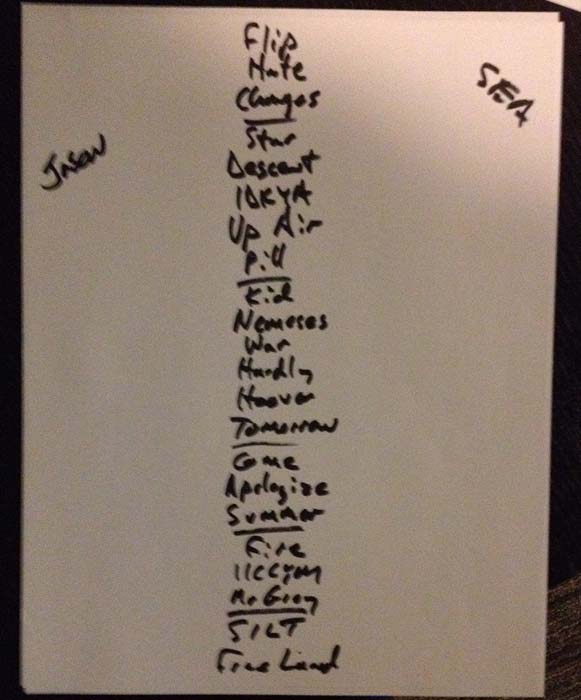 Flip
Hate
Changes
Star
Descent
IDKYA
Up Air
Pill
Kid
Nemeses
War
Hardly
Hoover
Tomorrow
Come
Apologize
Summer
Fire
IICCYM
Mr Grey
SILT
Free Land
Jason
SEA